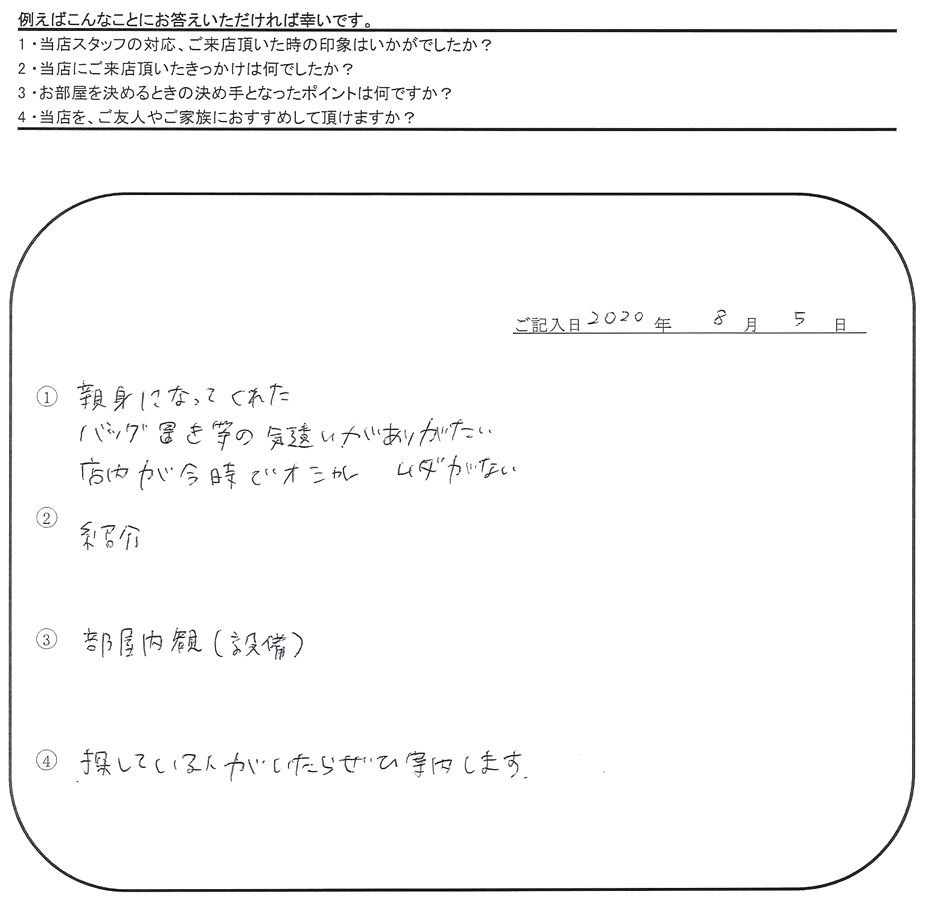 例えばこんなことにお答えいただければ幸いです。
1・当店スタッフの対応、ご来店頂いた時の印象はいかがでしたか？
2・当店にご来店頂いたきっかけは何でしたか？
3・お部屋を決めるときの決め手となったポイントは何ですか？
4・当店を、ご友人やご家族におすすめして頂けますか？
ご記入日 2020 年 8 月 5 日
① 親身になってくれた
バッグ置き等の気遣いがありがたい
店内が今時でオシャレ ムダがない
② 紹介
③ 部屋内観(設備)
④ 探している人がいたらぜひ案内します.